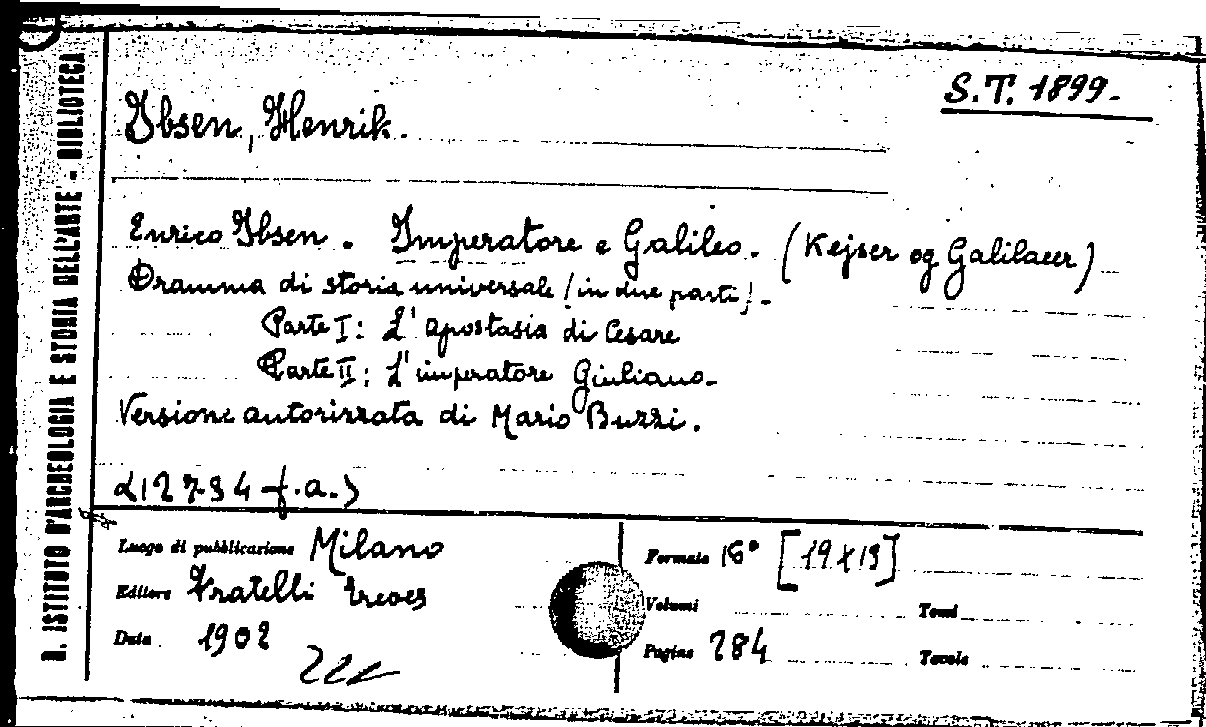 R. ISTITUTO D'ARCHEOLOGIA E STORIA DELL'ARTE - BIBLIOTECA
S.T. 1899.
Ibsen, Henrik.
Enrico Ibsen. Imperatore e Galileo. (Kejser og Galilaeer)
Dramma di storia universale (in due parti).
Parte I: L'apostasia di Cesare
Parte II: L'imperatore Giuliano.
Versione autorizzata di Mario Buzzi.
<12734 f.a.>
Luogo di pubblicazione Milano
Editore Fratelli Treves
Data 1902
Formato 16° [19x13]
Volumi
Tomi
Pagine 284
Tavole